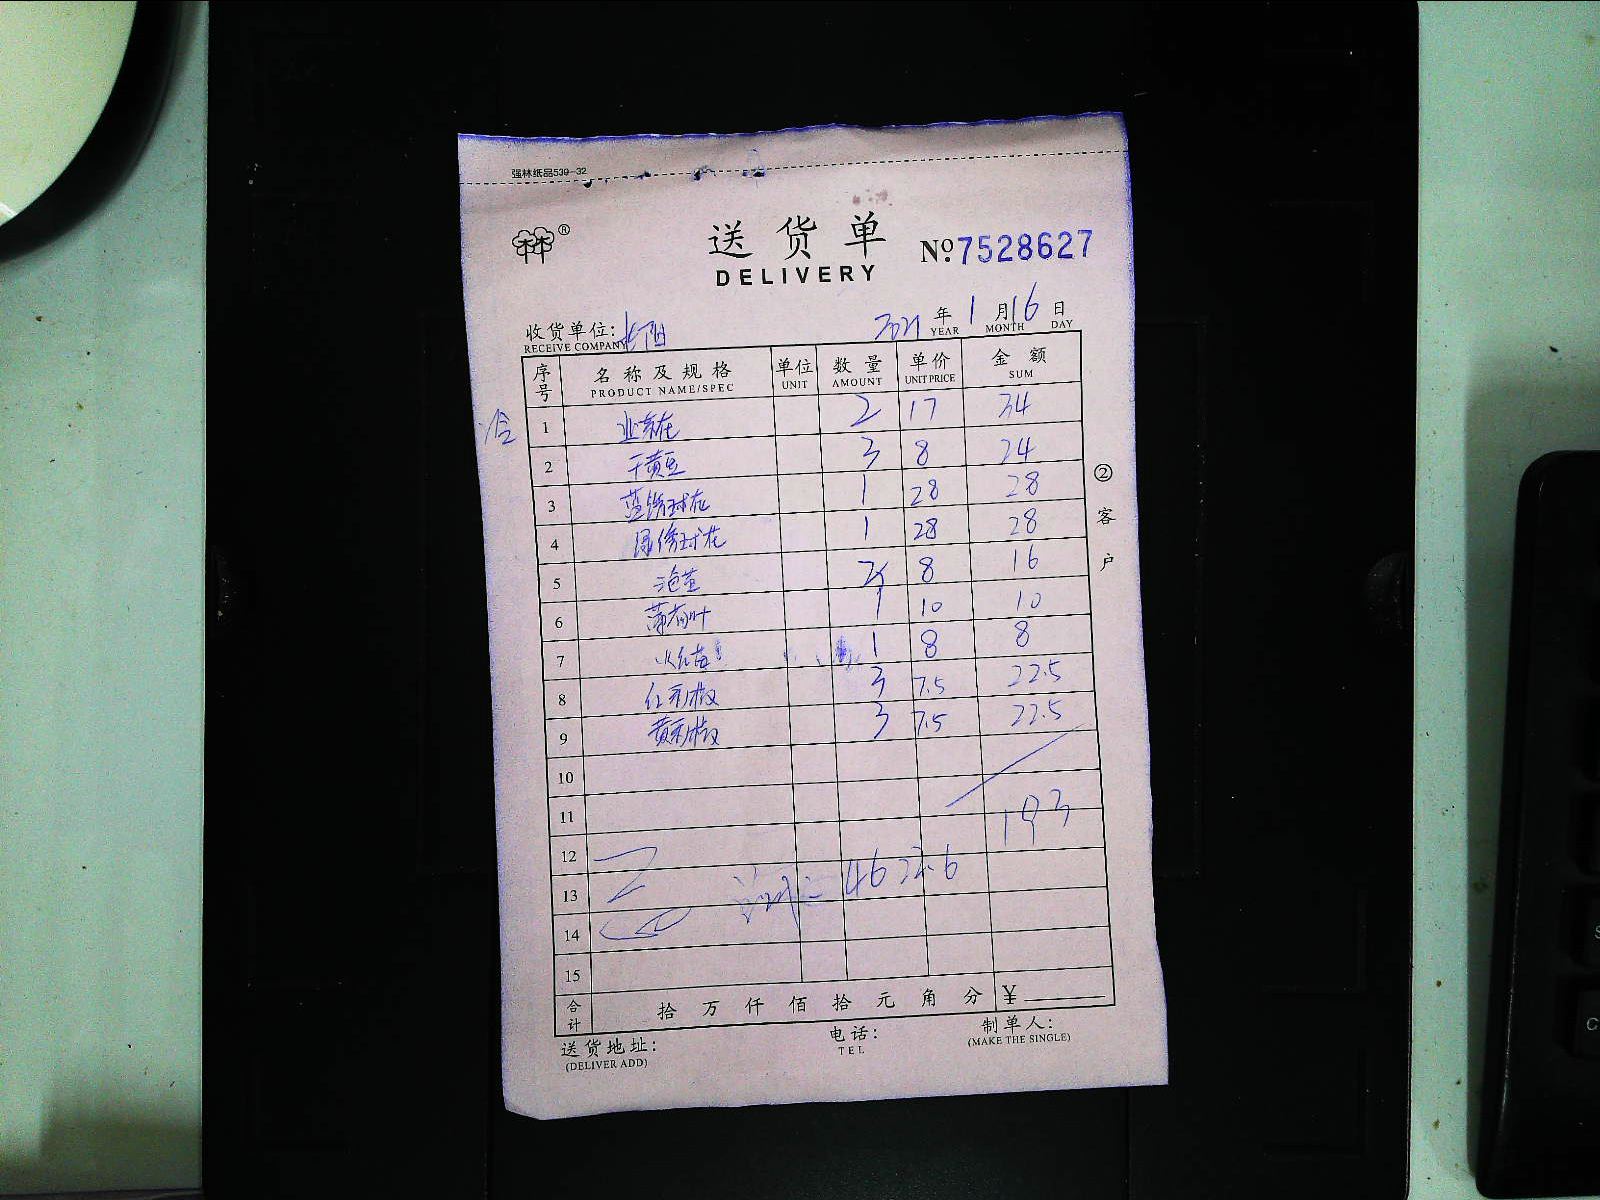 强林纸品530-32
林®
送货单
DELIVERY
Nº:7528627
收货单位:
RECEIVE COMPANY
2021 年 1 月 16 日
YEAR MONTH DAY
序号 名称及规格 单位 数量 单价 金额
PRODUCT NAME/SPEC UNIT AMOUNT UNIT PRICE SUM
1 2 17 34
2 干黄豆 3 8 24
3 蓝绣球花 1 28 28
4 绿绣球花 1 28 28
5 2 8 16
6 1 10 10
7 1 8 8
8 红彩椒 3 7.5 22.5
9 黄彩椒 3 7.5 22.5
10
11 193
12
13 4632.6
14
15
合计 拾 万 仟 佰 拾 元 角 分 ¥
送货地址: 电话: 制单人:
(DELIVER ADD) TEL (MAKE THE SINGLE)
②客户